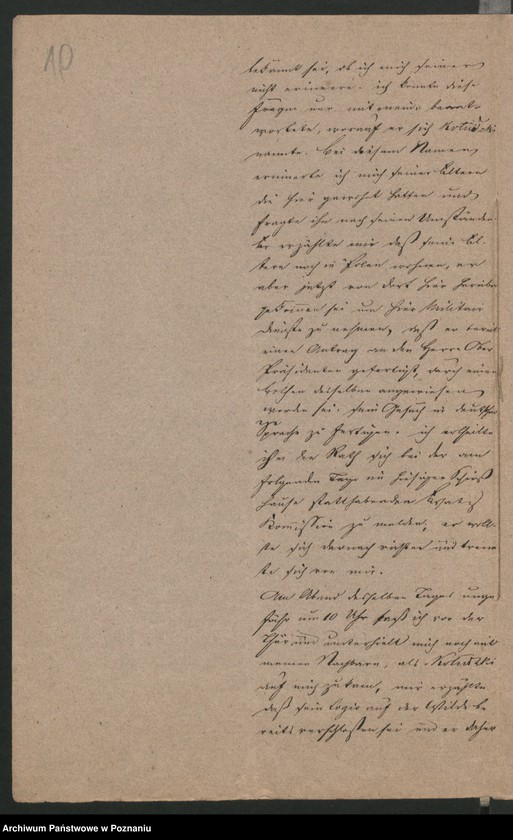 10
bekannt sei, ob ich mich seiner
nicht erinnere. ich konnte diese
Frage nur mit nein beant-
wortete, worauf er sich Kolud
nannte. Bei diesem Namen
erinnerte ich mich seiner Eltern
die hier gewohnt hatten und
fragte ihn nach seinen Umständen.
Er erzählte mir daß seine El-
tern noch in Polen wohnen, er
aber jetzt von dort hier herüber
gekommen sei um hier Militair
dienste zu nehmen, daß er bereits
einen Antrag an den Herrn Ober
Präsidenten gefertigt, durch einen
desselben angewiesen
worden sei, sein Gesuch in deutscher
Sprache zu fertigen. ich ertheilte
ihm den Rath sich bei der am
folgenden Tage im hiesigen Schieß
hause statthabenden
Komission zu melden, er woll-
te sich darnach richten und trenn
te sich von mir.
Am Abend desselben Tages unge
fähr um 10 Uhr saß ich vor der
Thür und unterhielt mich noch mit
meinen Nachbarn, als
auf mich zukam, mir erzählte
daß sein Logis auf der Wilde be
reits verschlossen sei und er daher
Archiwum Państwowe w Poznaniu